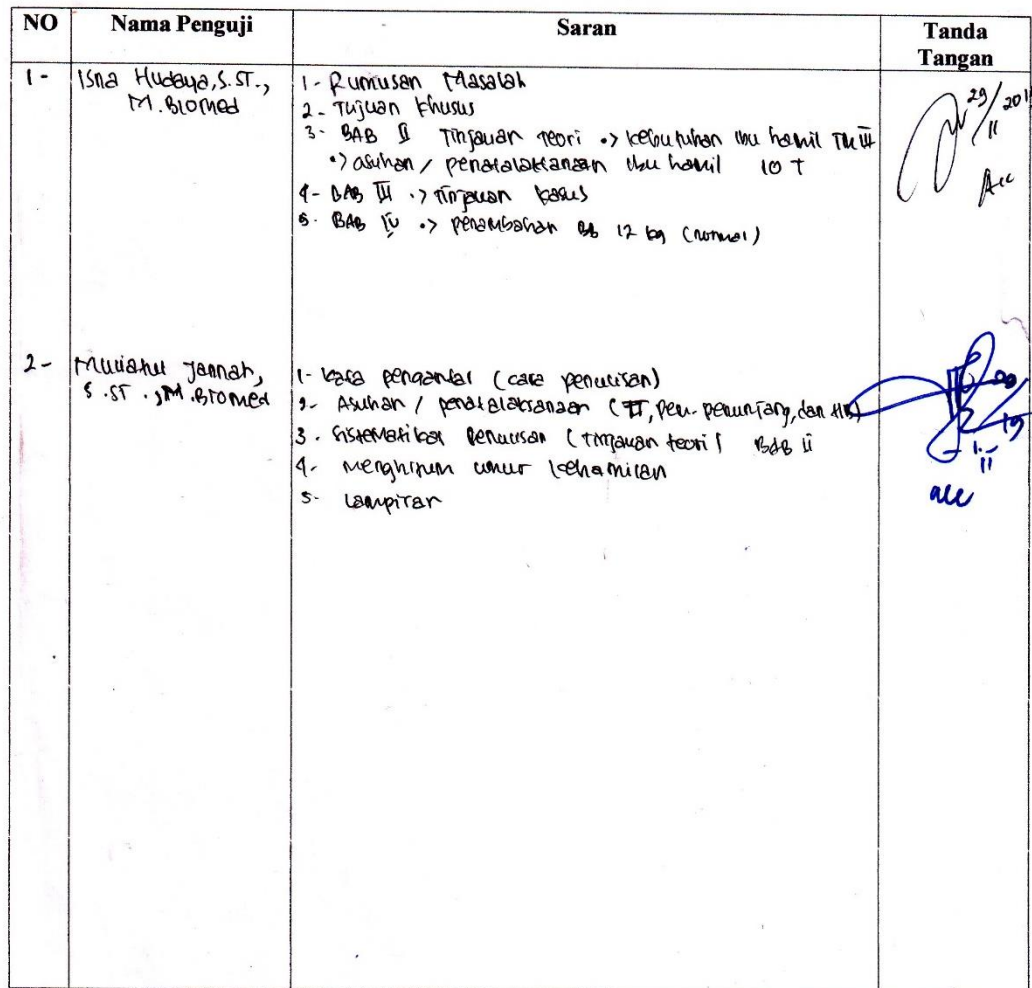 NO Nama Penguji Saran Tanda Tangan
1 - Isna Hudaya, S.ST.,
M.Biomed
1 - Rumusan Masalah
2 - Tujuan khusus
3 - BAB II Tinjauan Teori •> kebutuhan ibu hamil TM III
•> asuhan / penatalaksanaan ibu hamil 10 T
4 - BAB III •> Tinjauan kasus
5 - BAB IV •> penambahan BB 12 kg (normal)
29/11 201
Acc
2 - Jannah,
S.ST ., M.Biomed
1 - kata pengantar (cara penulisan)
2 - Asuhan / penatalaksanaan (TT, pem. penunjang, dan HB)
3 . Sistematika Penulisan (Tinjauan teori) BAB II
4 - Menghitung umur kehamilan
5 - Lampiran
acc